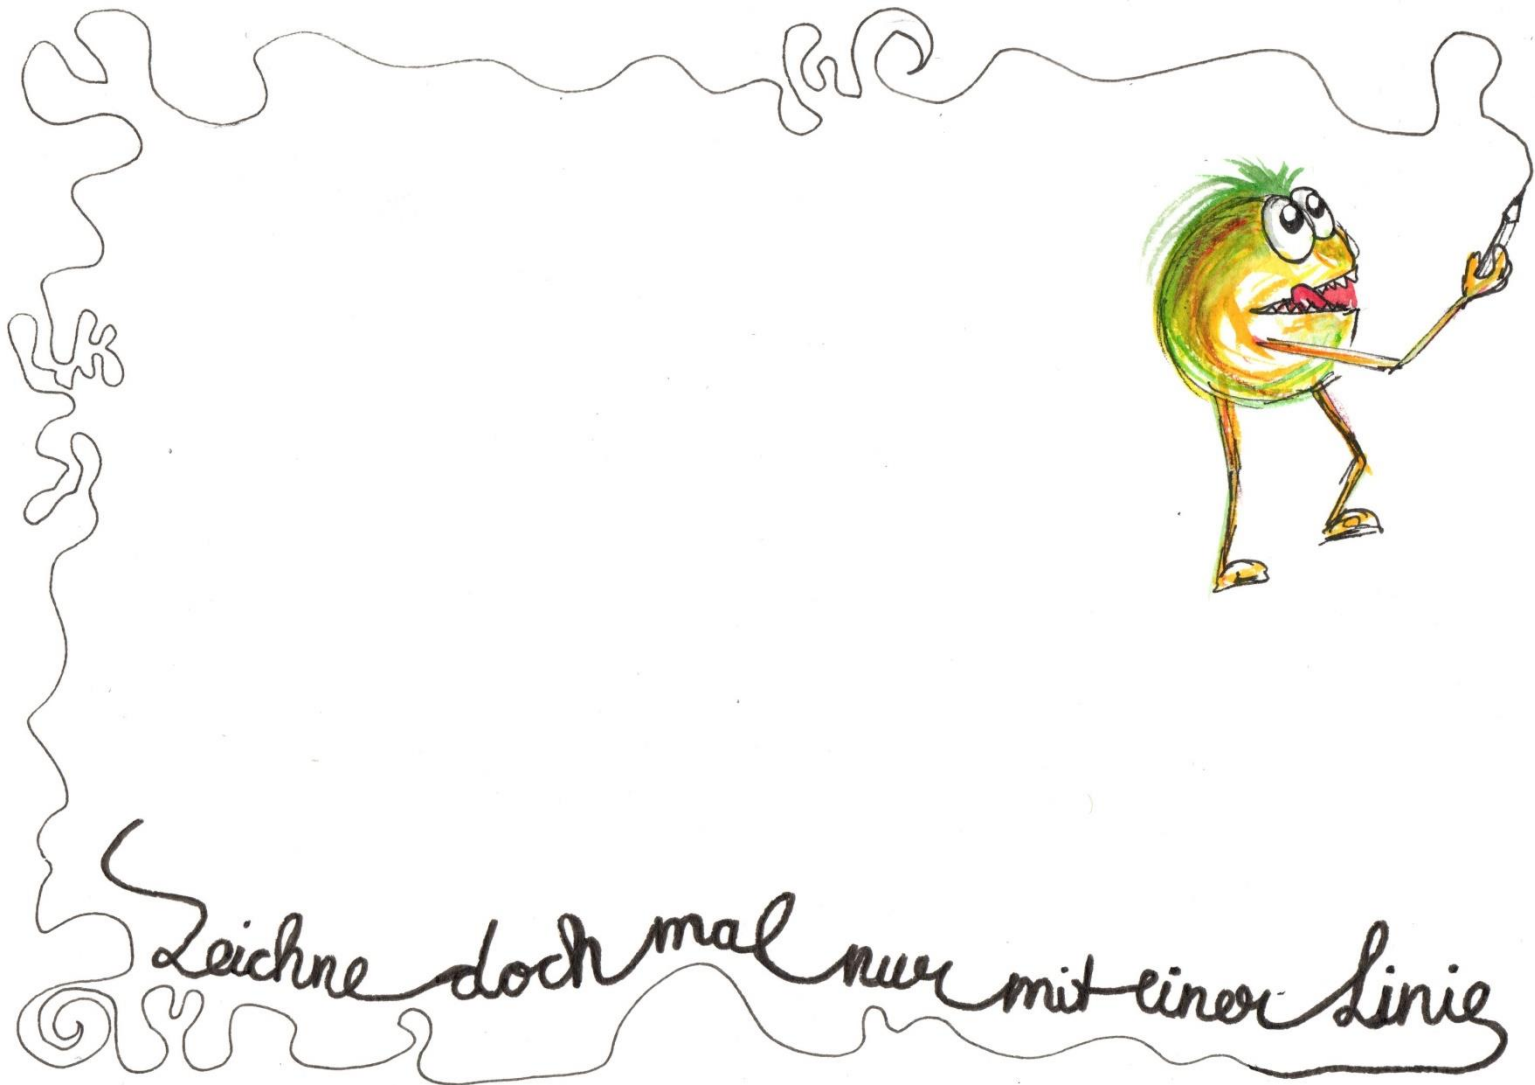 Zeichne doch mal nur mit einer Linie